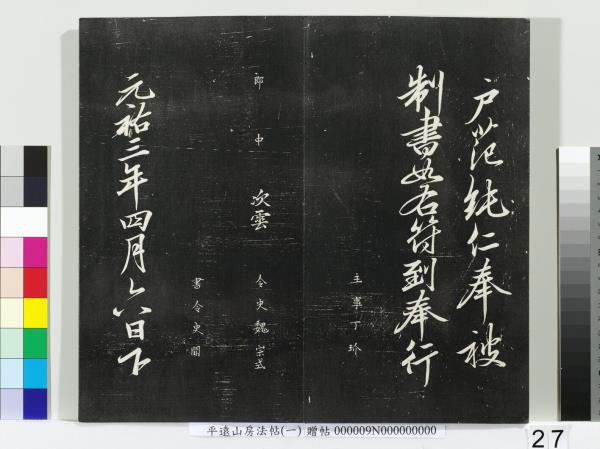 戶范純仁奉被
制書如右符到奉行
主事丁玠
郎中 次雲 令史魏宗式
書令史關
元祐三年四月六日下
平遠山房法帖(一) 贈帖 000009N000000000
27